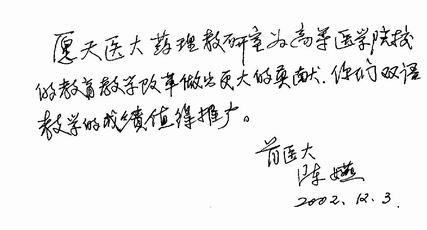 愿天医大药理教研室为高等医学院校
的教育教学改革做出更大的贡献.你们双语
教学的成绩值得推广。
首医大
陈嬿
2002.12.3.